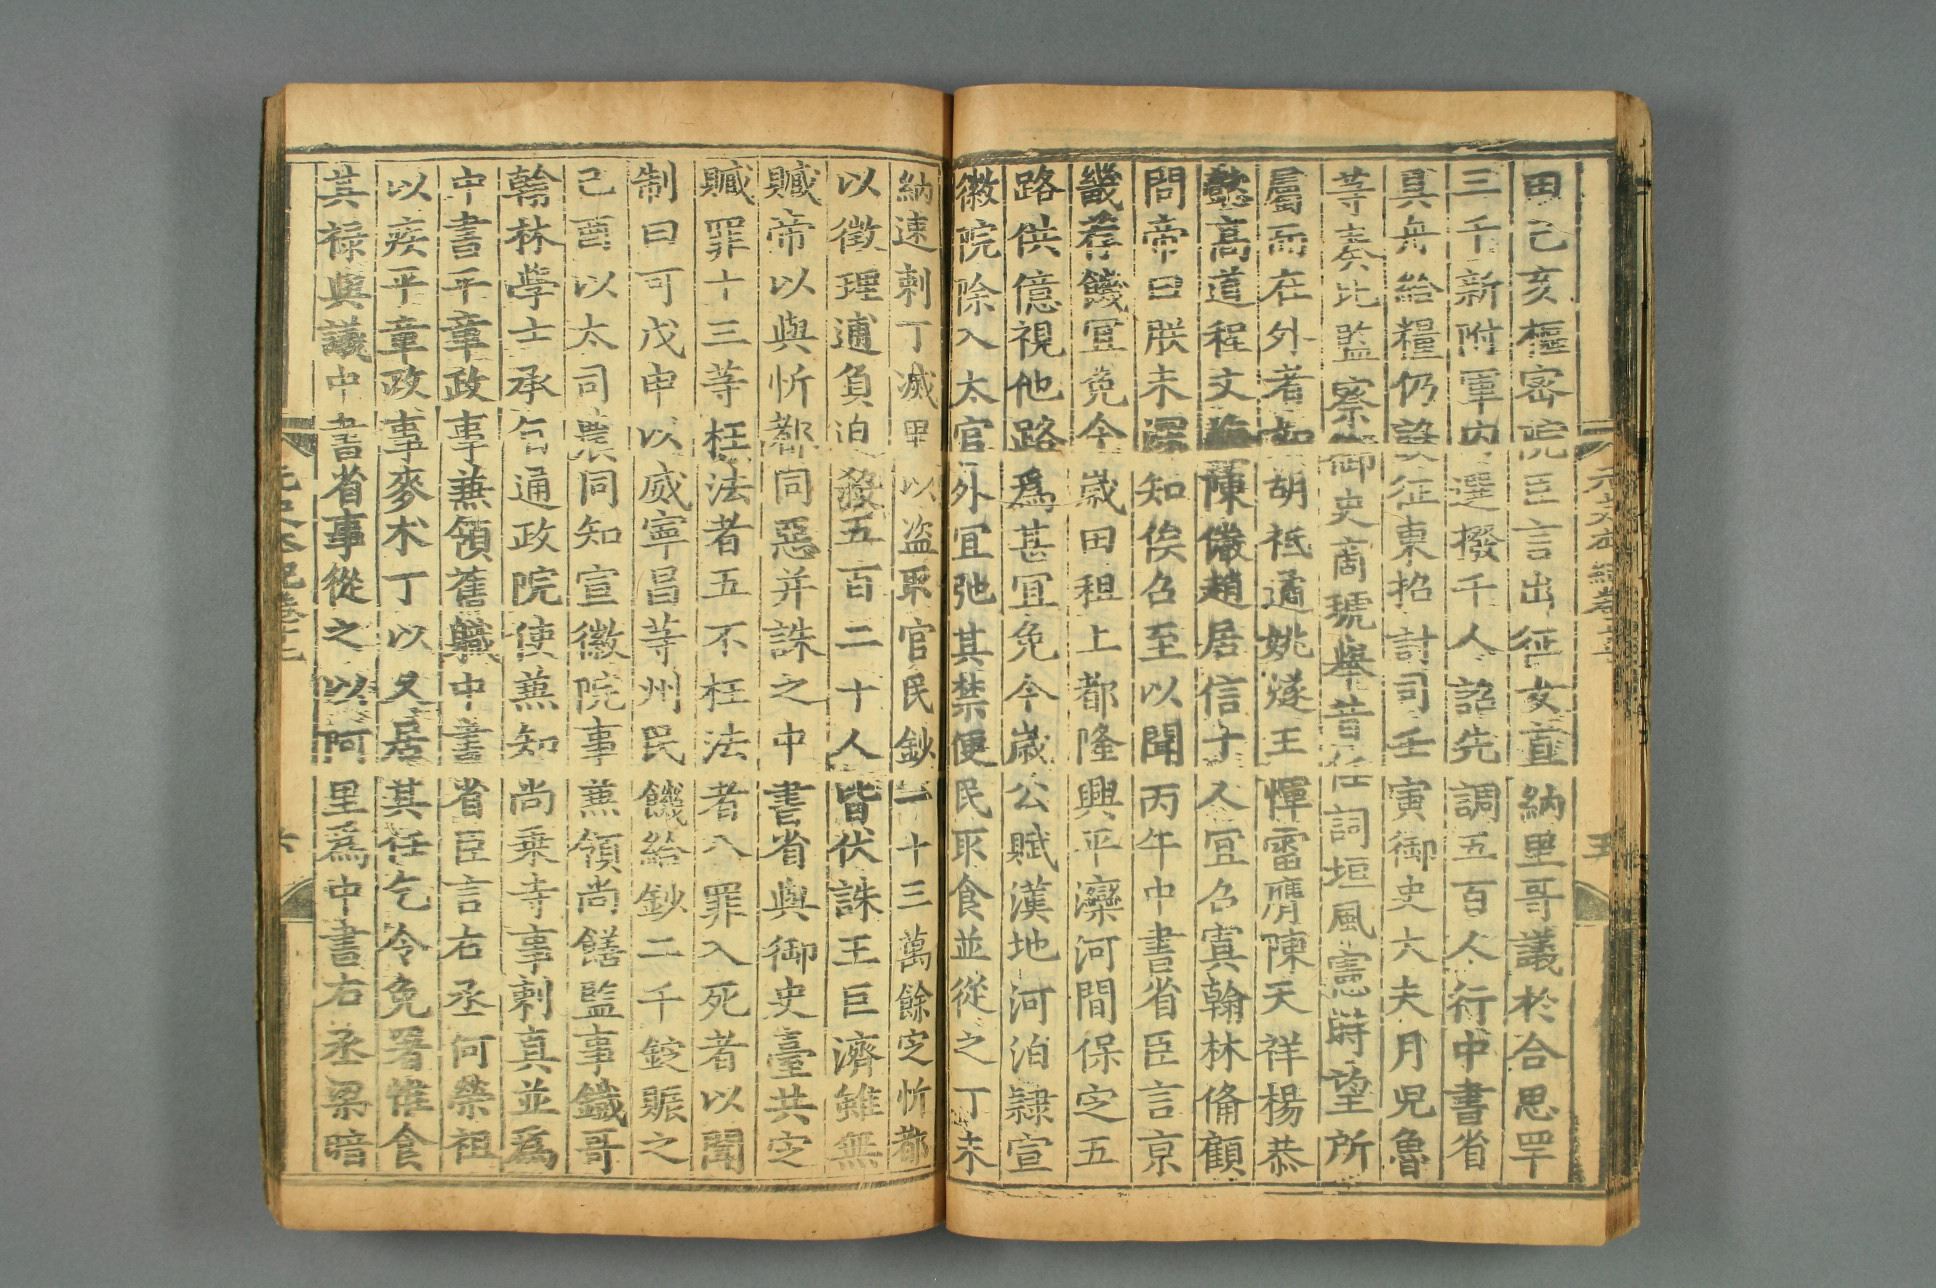 田己亥樞密院臣言出征女直納里哥議於合思罕
三千新附軍内選撥千人詔先調五百人行中書省
具舟給糧仍設征東招討司壬寅御史大夫月兒魯
等奏比監察御史商琥舉昔任詞垣風憲時望所
屬而在外者如胡祗遹姚燧王惲雷膺陳天祥楊恭
懿高道程文海陳儼趙居信十人宜召寘翰林備顧
問帝曰朕未深知俟召至以聞丙午中書省臣言京
畿荐饑宜免今歲田租上都隆興平灤河間保定五
路供億視他路爲甚宜免今歲公賦漢地河泊隸宣
徽院除入太官外宜弛其禁便民取食並從之丁未
納速剌丁滅里以盗取官民鈔一十三萬餘定忻都
以徵理逋負迫殺五百二十人皆伏誅王巨濟雖無
贓帝以與忻都同惡并誅之中書省與御史臺共定
贓罪十三等枉法者五不枉法者八罪入死者以聞
制曰可戊申以威寧昌等州民饑給鈔二千錠賑之
己酉以太司農同知宣徽院事兼領尚饍監事鐵哥
翰林學士承旨通政院使兼知尚乗寺事剌真並爲
中書平章政事兼領舊職中書省臣言右丞何榮祖
以疾平章政事麥术丁以久居其任乞令免署惟食
其禄與議中書省事從之以阿里爲中書右丞梁暗
元史本紀卷十七
六
五